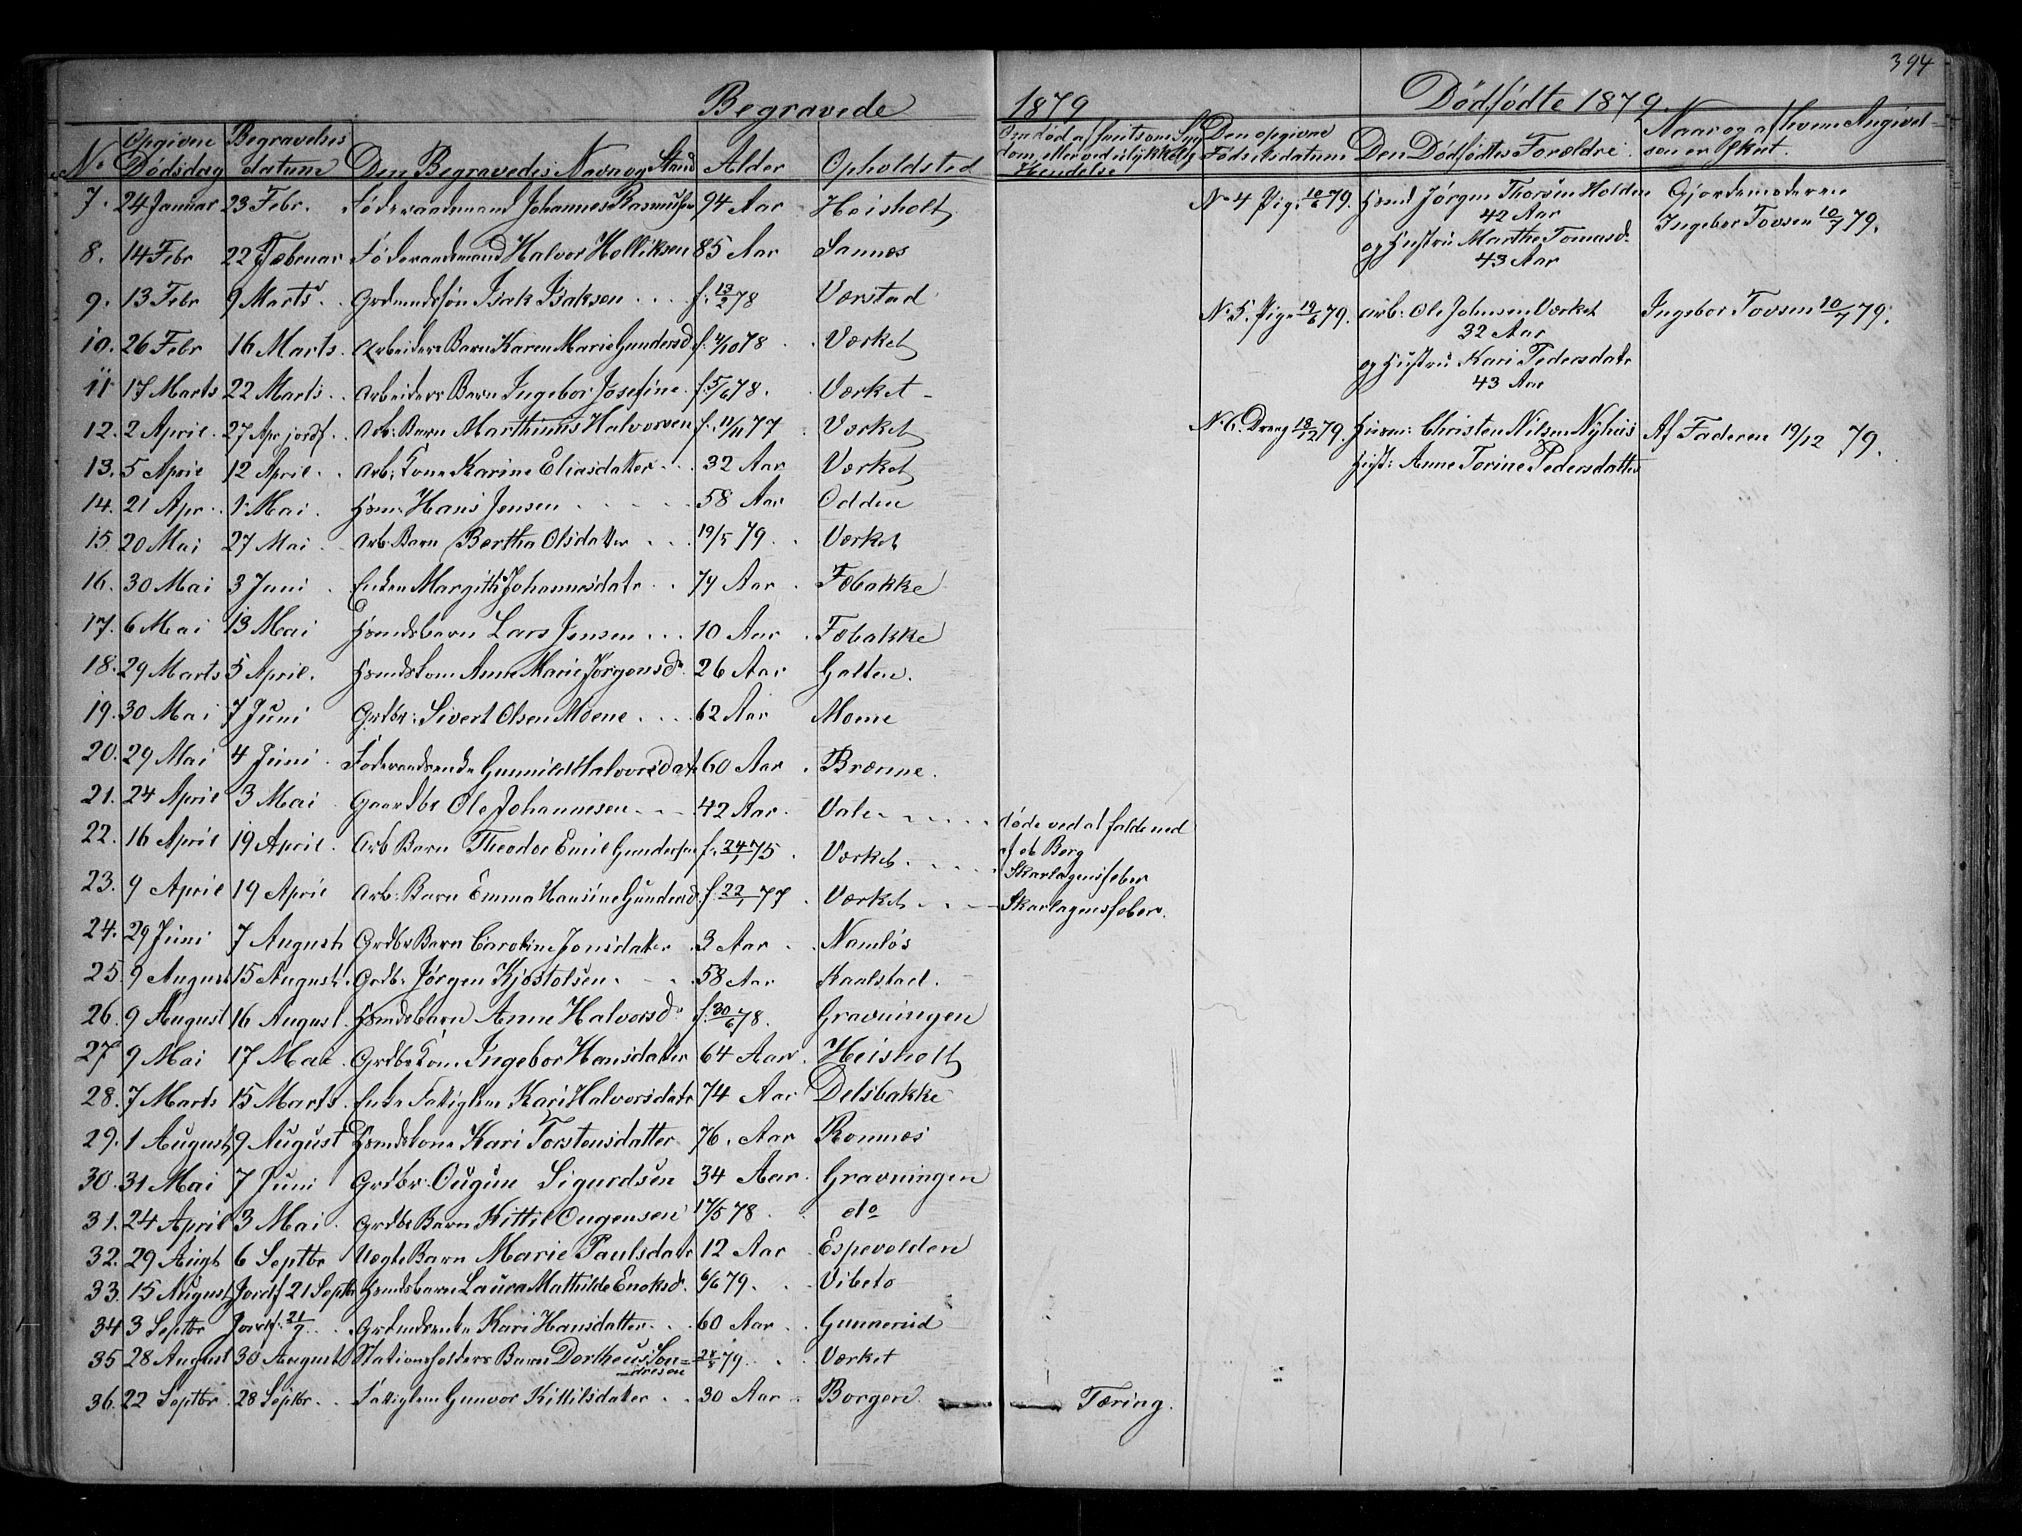 394
Begravede 1879
Dødfødte 1879.
No Opgiven Dødsdag Begravelses datum Den Begravedes Navn og Stand Alder Opholdsted
Om død af smitsom Syg-
dom eller ved ulykkelig
Hendelse
Den opgivne Fødselsdatum Den Dødfødtes Forældre. Naar og af hvem Angivel-
sen er skeet.
7. 24 Januar 23 Febr. Föderaadsmand Johannes Rasmusen 94 Aar Heisholt
8. 14 Febr 22 Februar Föderaadsmand Halvor Holliksen 85 Aar Sannes
9. 13 Febr 9 Marts. Grdmndssön Isak Isaksen f. 13/2 78 Verstad
10. 26 Febr 16 Marts. Arbeiders Barn Karen Marie Gundersd f. 4/10 78 Værket
11 17 Marts 22 Marts. Arbeiders Barn Ingebor Josefine f. 5/6 78. Værket
12. 2 April. 27 Apr jordf. Arb: Barn Marthinus Halvorsen f. 11/11 77 Værket
13. 5 April 12 April. Arb: Kone Karine Eliasdatter 32 Aar Værket
14. 21 Apr. 1 Mai. Hsm: Hans Jensen 58 Aar Odden
15 20 Mai 27 Mai Arb: Barn Bertha Olsdatter 19/5 79. Værket
16. 30 Mai 3 Juni. Enken Margith Johannesdatr 79 Aar Fæbakke
17. 6 Mai 13 Mai Hsmdsbarn Lars Jensen 10 Aar Fæbakke
18. 29 Marts 5 April. Hsmdskone Anne Marie Jørgensdr 26 Aar Galten.
19. 30 Mai 7 Juni Grdbr: Sivert Olsen Moene 62 Aar Moene
20. 29 Mai 4 Juni Föderaadsenke Gunnild Halvorsdatr 60 Aar Brænne.
21. 24 April 3 Mai Gaardbr Ole Johannesen 42 Aar. Vale døde ved at falde ned
af et Berg
22. 16 April 19 April. Arb Barn Theodor Emil Gundersen f. 24/1 75 Værket Skarlagensfeber
23. 9 April 19 April Arb: Barn Emma Hansine Gundersd f. 22/1 77 Værket Skarlagensfeber.
24. 29 Juni 7 August Grdbr Barn Caroline Jonsdatter 3 Aar Namløs
25. 9 August 15 August. Grdbr Jørgen Kjøstolsen 58 Aar Kaalstad.
26. 9 August 16 August. Hsmdsbarn Anne Halvorsdr f. 30/6 78. Gravningen
27 9 Mai 17 Mai Grdbr Kone Ingebor Hansdatter 64 Aar. Heisholt
28. 7 Marts 15 Marts. Enke Fattiglem Kari Halvorsdatr 74 Aar Delsbakke
29. 1 August 9 August Hsmdskone Kari Torstensdatter 76. Aar Romnes
30. 31 Mai 7 Juni Grdbr. Ougun Sigurdsen 34 Aar. Gravningen
31. 24 April 3 Mai. Grdbr Barn Kittil Ougensen 17/5 78 do
32. 29 Augt 6 Septbr Uægte Barn Marie Paulsdatr 12 Aar Espevolden
33. 15 August Jordf 21 Septbr Hsmdsbarn Laura Mathilde Enoksdr 6/6 79. Vibeto
34 3 Septbr Jordf. 21/9 Grdmdsenke Kari Hansdatter 60 Aar Gunnerud
35 28 August 30 August Stationsholders Barn Dortheus Son=
dresen 24/8 79. Værket
36. 22 Septbr 28 Septbr. Fattiglem Gunvor Kittilsdatter 30 Aar Borgen. Tæring.
No 4 Pige 10/6 79. Hsmd Jørgen Thorsen Holden
42 Aar
og Hustru Marthe Tomasdr
43 Aar
Gjordemoderen
Ingebor Tovsen 10/7 79.
No 5. Pige 19/6 79. Arb: Ole Johnsen Værket
32 Aar
og Hustru Kari Pedersdatr
43 Aar
Ingebor Tovsen 10/7 79.
No 6. Dreng 18/12 79. Christen Nilsen Nyhus
Hust: Anne Torine Pedersdatter
Af Faderen 19/12 79.